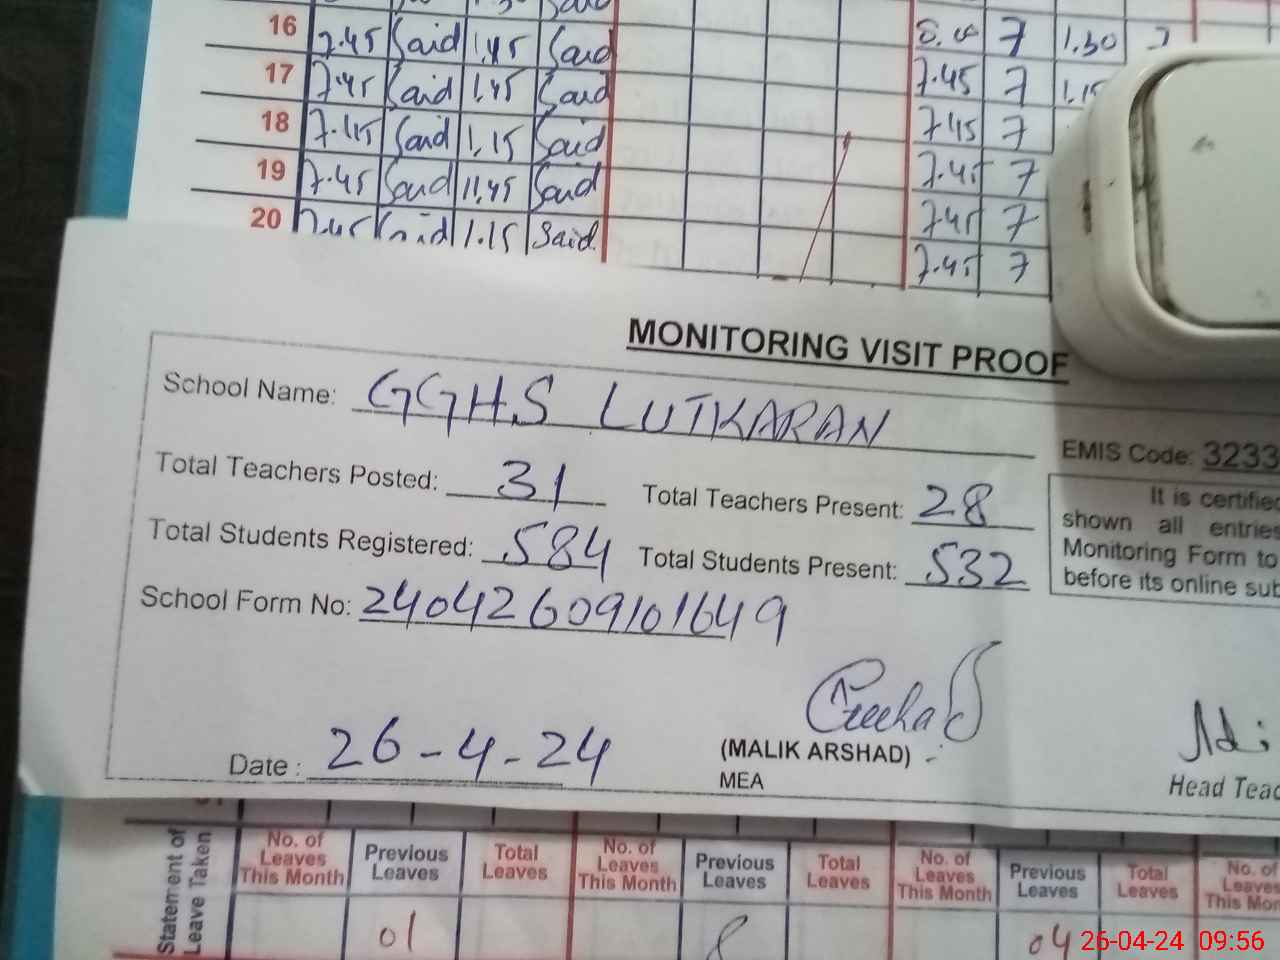 16 7.45 Said 1.45 Said 8.00 7 1.30 7
17 7.45 Said 1.45 Said 7.45 7 1.15
18 7.45 Said 1.15 Said 7.45 7
19 7.45 Said 11.45 Said 7.45 7
20 7.45 Said 1.15 Said. 7.45 7
7.45 7
MONITORING VISIT PROOF
School Name: GGHS LUTKARAN
EMIS Code: 3233
Total Teachers Posted: 31 Total Teachers Present: 28
Total Students Registered: 584 Total Students Present: 532
It is certified
shown all entries
Monitoring Form to
before its online sub
School Form No: 24042609101649
Date : 26-4-24
(MALIK ARSHAD)
MEA
Head Teac
Statement of Leave Taken
No. of Leaves This Month Previous Leaves Total Leaves No. of Leaves This Month Previous Leaves Total Leaves No. of Leaves This Month Previous Leaves Total Leaves No. of Leaves This Mon
01 8 04
26-04-24 09:56